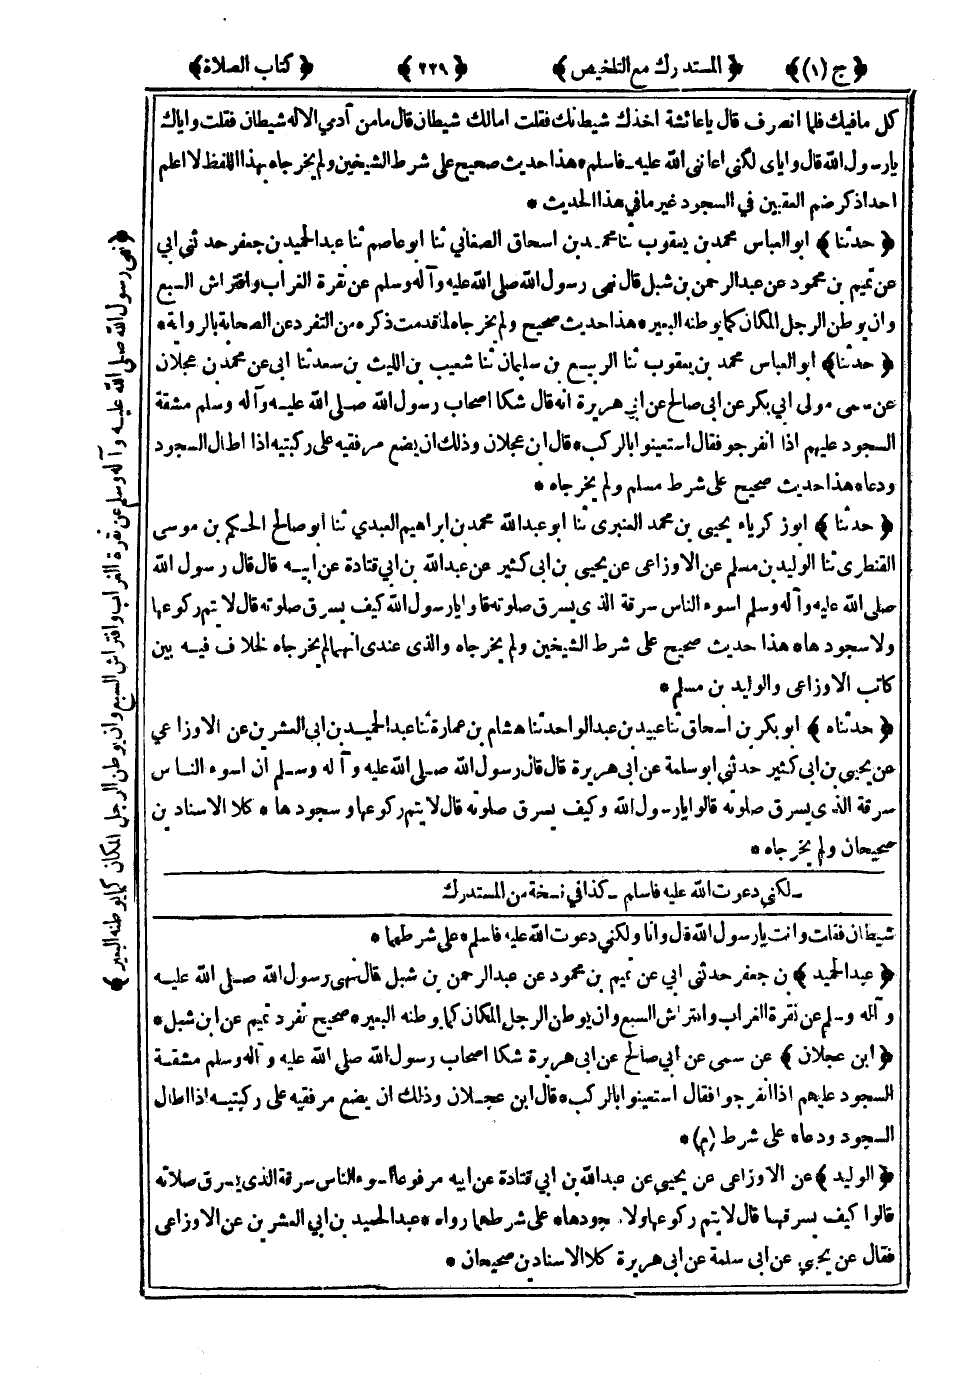 ﴿ج (١)﴾ ﴿المستدرك مع التلخيص﴾ ﴿٢٢٩﴾ ﴿كتاب الصلاة﴾
كل مافيك فلما انصرف قال ياعائشة اخذك شيطانك فقلت امالك شيطان قال مامن آدمي الا له شيطان فقلت واياك
يارسول الله قال واياى لكنى اعاننى الله عليه ـ فاسلم * هذا حديث صحيح على شرط الشيخين ولم يخرجاه بهذا اللفظ لا اعلم
احدا ذكر ضم العقبين في السجود غير مافي هذا الحديث *
﴿ حدثنا ﴾ ابو العباس محمد بن يعقوب ثنا محمد بن اسحاق الصغاني ثنا ابو عاصم ثنا عبدالحميد بن جعفر حدثني ابي
عن تميم بن محمود عن عبدالرحمن بن شبل قال نهى رسول الله صلى الله عليه وآله وسلم عن نقرة الغراب وافتراش السبع
وان يوطن الرجل المكان كما يوطنه البعير * هذا حديث صحيح ولم يخرجاه لما قدمت ذكره من التفرد عن الصحابة بالرواية *
﴿ حدثنا ﴾ ابو العباس محمد بن يعقوب ثنا الربيع بن سليمان ثنا شعيب بن الليث بن سعد ثنا ابى عن محمد بن عجلان
عن سمى مولى ابي بكر عن ابى صالح عن ابي هريرة انه قال شكا اصحاب رسول الله صلى الله عليه وآله وسلم مشقة
السجود عليهم اذا انفرجوا فقال استعينوا بالركب * قال ابن عجلان وذلك ان يضع مرفقيه على ركبتيه اذا اطال السجود
ودعا * هذا حديث صحيح على شرط مسلم ولم يخرجاه *
﴿ حدثنا ﴾ ابو زكرياء يحيى بن محمد العنبرى ثنا ابو عبدالله محمد بن ابراهيم العبدي ثنا ابو صالح الحكم بن موسى
القنطرى ثنا الوليد بن مسلم عن الاوزاعى عن يحيى بن ابى كثير عن عبدالله بن ابي قتادة عن ابيه قال قال رسول الله
صلى الله عليه وآله وسلم اسوء الناس سرقة الذى يسرق صلوته قالوا يارسول الله كيف يسرق صلوته قال لا يتم ركوعها
ولا سجودها * هذا حديث صحيح على شرط الشيخين ولم يخرجاه والذى عندى انهما لم يخرجاه لخلاف فيه بين
كاتب الاوزاعى والوليد بن مسلم *
﴿ حدثناه ﴾ ابو بكر بن اسحاق ثنا عبيد بن عبد الواحد ثنا هشام بن عمارة ثنا عبد الحميد بن ابي العشرين عن الاوزاعي
عن يحيى بن ابى كثير حدثني ابو سلمة عن ابى هريرة قال قال رسول الله صلى الله عليه وآله وسلم ان اسوء الناس
سرقة الذى يسرق صلوته قالوا يارسول الله وكيف يسرق صلوته قال لا يتم ركوعها وسجودها * كلا الاسنادين
صحيحان ولم يخرجاه *
ـ لكنى دعوت الله عليه فاسلم ـ كذا في نسخة من المستدرك
شيطان فقلت وانت يارسول الله قال وانا ولكني دعوت الله عليه فاسلم * على شرطهما *
﴿ عبد الحميد ﴾ بن جعفر حدثنى ابي عن تميم بن محمود عن عبدالرحمن بن شبل قال نهى رسول الله صلى الله عليه
وآله وسلم عن نقرة الغراب وافتراش السبع وان يوطن الرجل المكان كما يوطنه البعير * صحيح تفرد تميم عن ابن شبل *
﴿ ابن عجلان ﴾ عن سمى عن ابي صالح عن ابى هريرة شكا اصحاب رسول الله صلى الله عليه وآله وسلم مشقة
السجود عليهم اذا انفرجوا فقال استعينوا بالركب * قال ابن عجلان وذلك ان يضع مرفقيه على ركبتيه اذا اطال
السجود ودعا * على شرط (م) *
﴿ الوليد ﴾ عن الاوزاعى عن يحيى عن عبدالله بن ابي قتادة عن ابيه مرفوعا اسوء الناس سرقة الذى يسرق صلاته
قالوا كيف يسرقها قال لا يتم ركوعها ولا سجودها * على شرطهما رواه * عبدالحميد بن ابي العشرين عن الاوزاعى
فقال عن يحيى عن ابى سلمة عن ابى هريرة كلا الاسنادين صحيحان *
﴿ نهى رسول الله صلى الله عليه وآله وسلم عن نقرة الغراب وافتراش السبع وان يوطن الرجل المكان كما يوطنه البعير ﴾